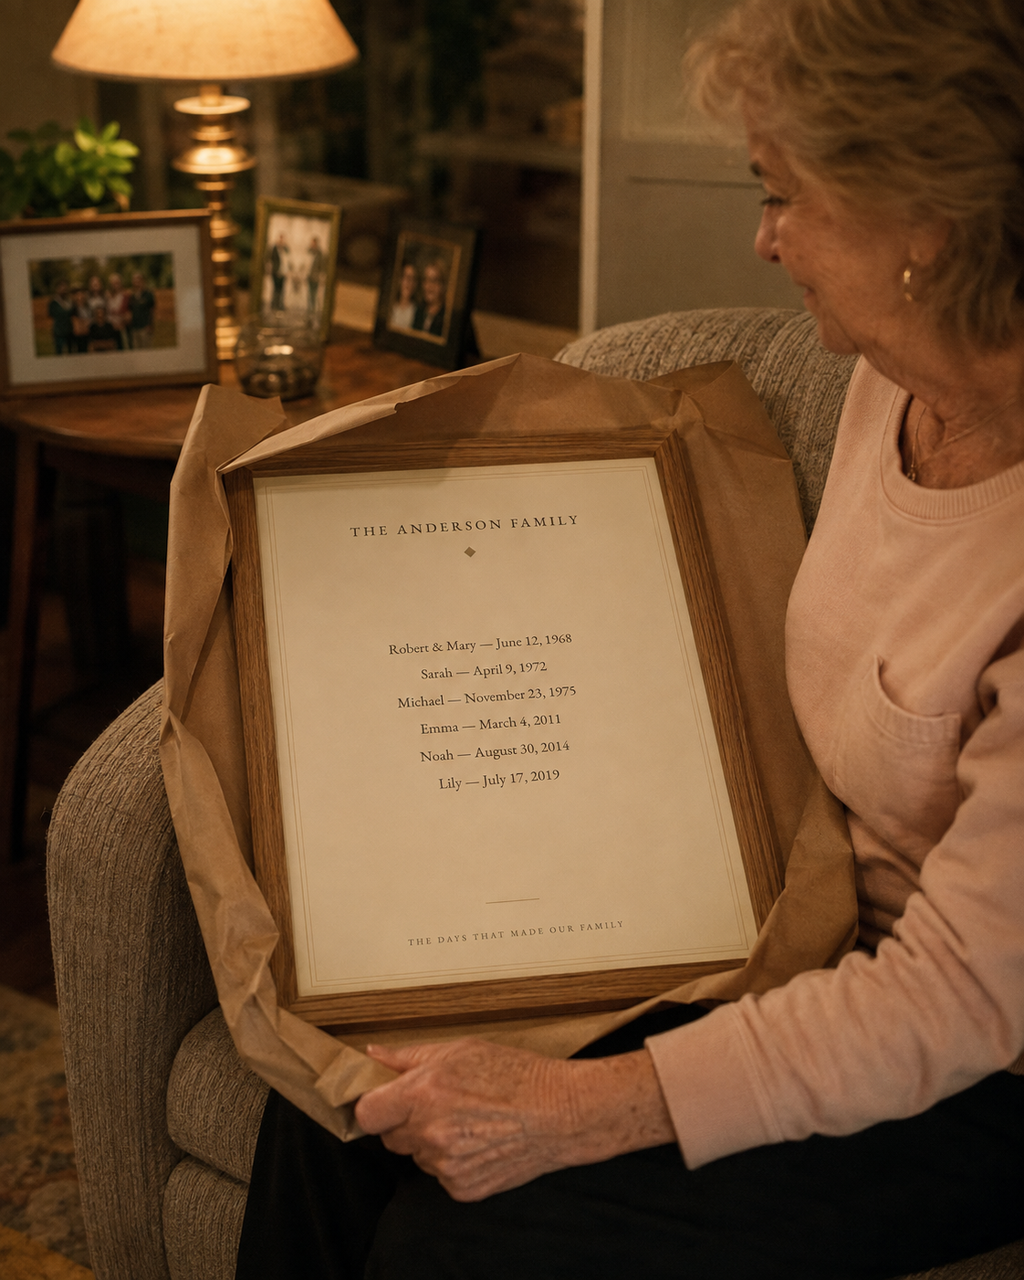 THE ANDERSON FAMILY
Robert & Mary — June 12, 1968
Sarah — April 9, 1972
Michael — November 23, 1975
Emma — March 4, 2011
Noah — August 30, 2014
Lily — July 17, 2019
THE DAYS THAT MADE OUR FAMILY